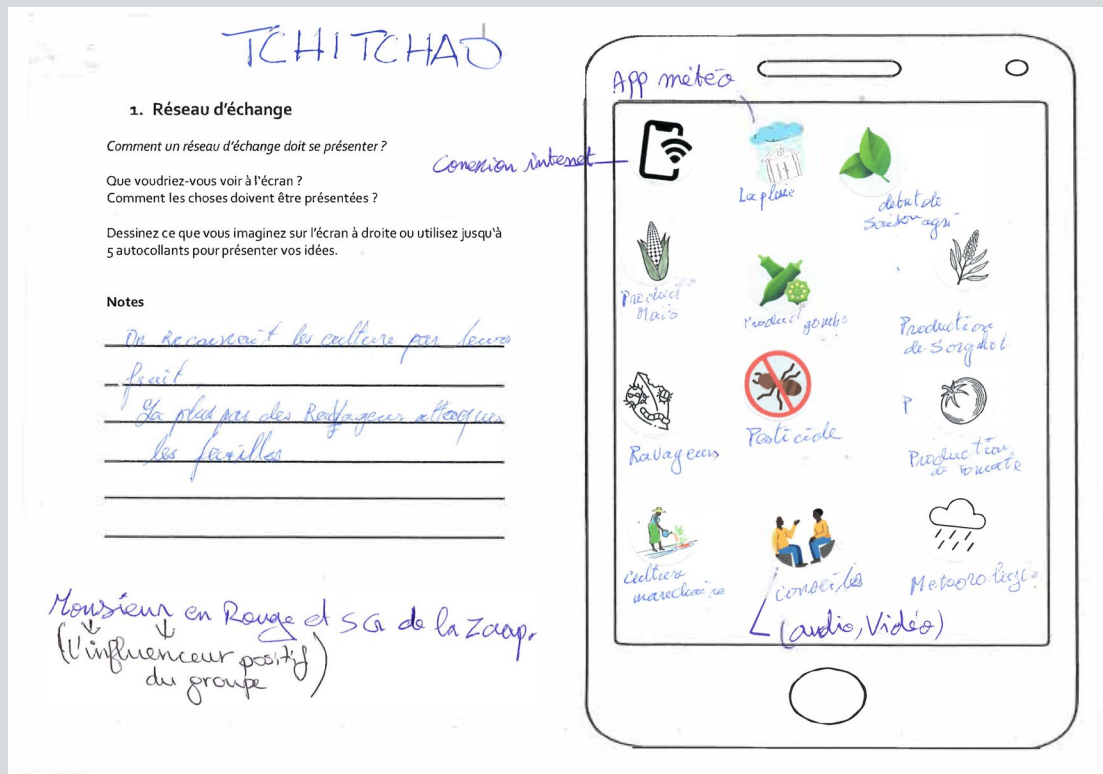 TCHITCHAO
1. Réseau d'échange
Comment un réseau d'échange doit se présenter ?
Que voudriez-vous voir à l'écran ?
Comment les choses doivent être présentées ?
Dessinez ce que vous imaginez sur l'écran à droite ou utilisez jusqu'à
5 autocollants pour présenter vos idées.
Notes
On Reconnait les culture par leurs
fruit
La plus par des Ravageur attaques
les feuilles
Monsieur en Rouge et SG de la Zaap.
(L'influenceur positif
du groupe)
App météo
Conexion intenet
La pluie
debut de
saison agri
Product
Maïs
Product gombo
Production
de Sorghot
Ravageurs
Pesticide
P
Production
de Tomate
Culture
marechaire
Conseiles
(audio, Vidéo)